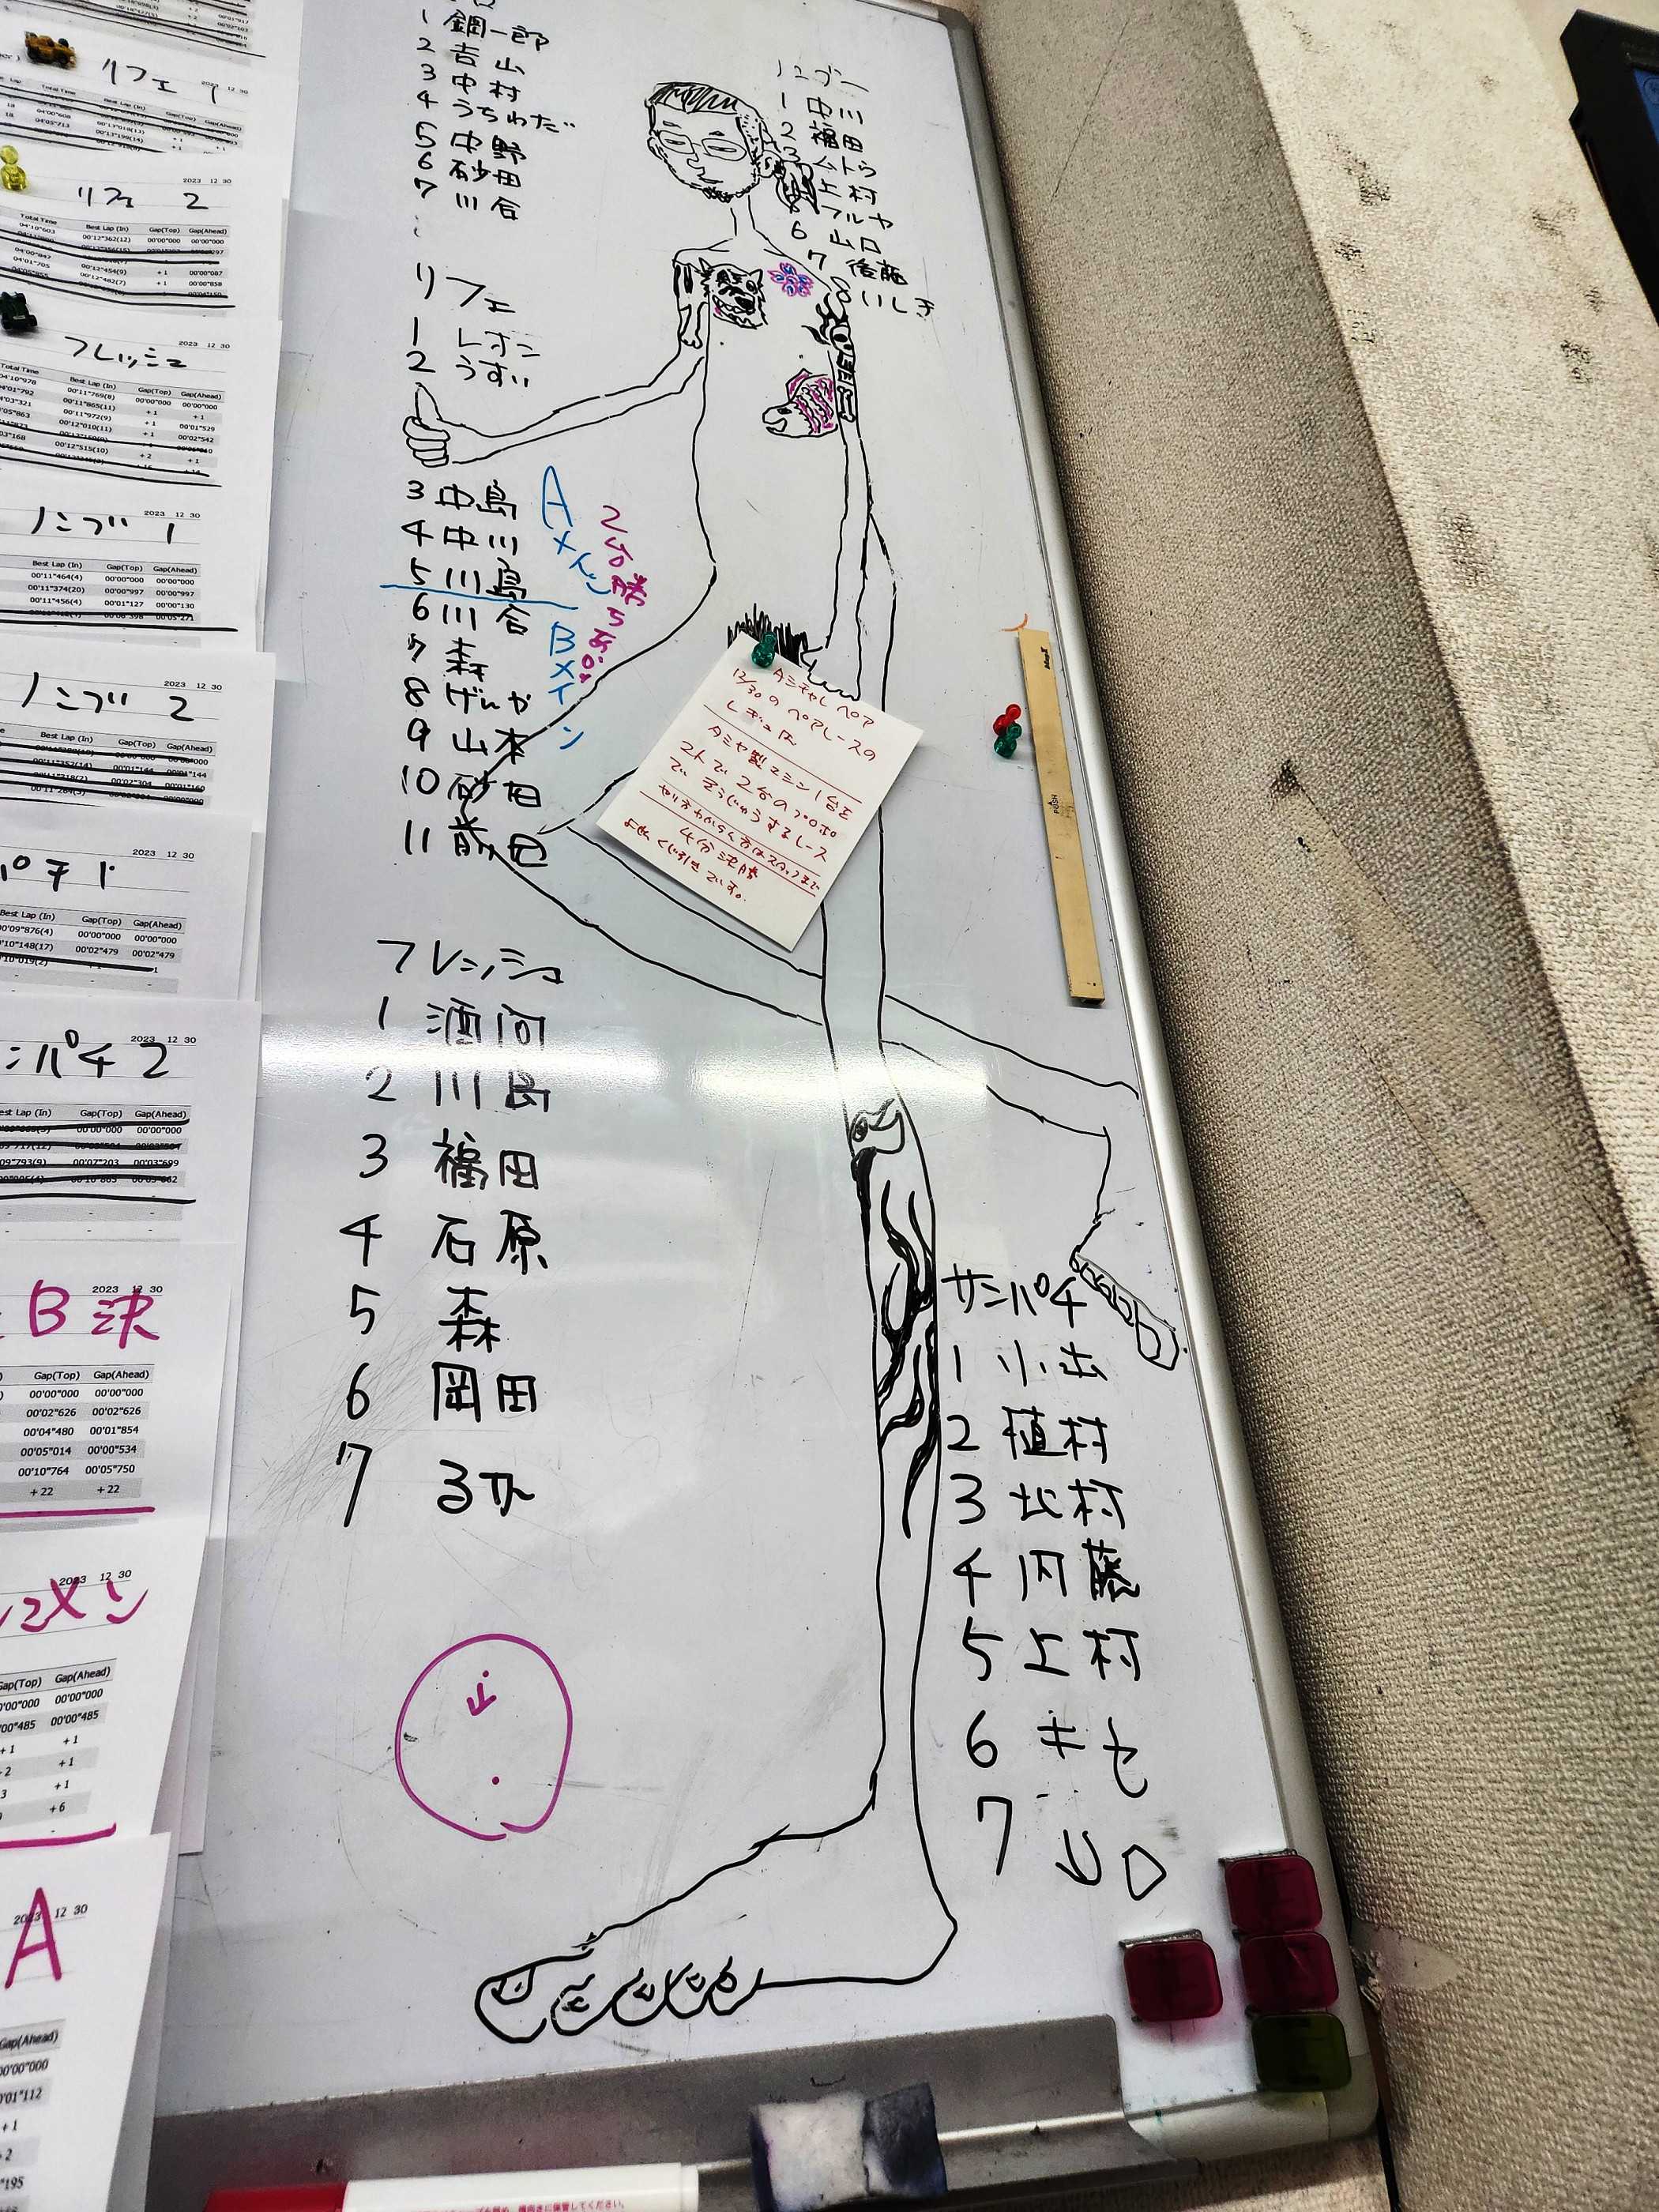 1 鋼一郎
2 吉山
3 中村
4 うちわだ
5 中野
6 砂田
7 川合
リフェ
1 レオン
2 うすい
3 中島
4 中川
5 川島
6 川合
7 森
8 げんや
9 山本
10 砂田
11 前田
Aメイン
Bメイン
2分勝ちあり
フレッシュ
1 酒向
2 川島
3 福田
4 石原
5 森
6 岡田
7 るか
1 中川
2 福田
3 ムトウ
上村
フルヤ
6 山口
7 後藤
8 いしき
BEER
タミチャレペア
12/30のペアレースの
レギュは
タミヤ製マシン1台を
2人で2台のプロポ
でそうじゅうするレース
やり方わからん方はスタッフまで
4分決勝
よせんくじ引きです。
サンパチ
1 小出
2 植村
3 北村
4 内藤
5 上村
6 キセ
7 山口
リフェ 1
Total Time Best Lap (In) Gap(Top) Gap(Ahead)
2023 12 30
リフェ 2
Total Time Best Lap (In) Gap(Top) Gap(Ahead)
04'10"603 00'12"362(12) 00'00"000 00'00"000
04'01"705 00'12"454(9) +1 00'00"087
00'12"482(7) +1 00'00"858
2023 12 30
フレッシュ
Total Time Best Lap (In) Gap(Top) Gap(Ahead)
04'10"978 00'11"769(8) 00'00"000 00'00"000
00'11"865(11) +1 +1
00'11"972(9) +1 00'01"529
00'12"010(11) +1 00'02"542
00'12"515(10) +2 +1
2023 12 30
ノンブ 1
Best Lap (In) Gap(Top) Gap(Ahead)
00'11"464(4) 00'00"000 00'00"000
00'11"374(20) 00'00"997 00'00"997
00'11"456(4) 00'01"127 00'00"130
2023 12 30
ノンブ 2
Best Lap (In) Gap(Top) Gap(Ahead)
2023 12 30
パチ 1
Best Lap (In) Gap(Top) Gap(Ahead)
00'09"876(4) 00'00"000 00'00"000
00'10"148(17) 00'02"479 00'02"479
2023 12 30
ンパチ 2
Lap (In) Gap(Top) Gap(Ahead)
2023 12 30
B 決
Gap(Top) Gap(Ahead)
00'00"000 00'00"000
00'02"626 00'02"626
00'04"480 00'01"854
00'05"014 00'00"534
00'10"764 00'05"750
+22 +22
2023 12 30
Gap(Top) Gap(Ahead)
00'00"000 00'00"000
00'00"485 00'00"485
+1 +1
+2 +1
+3 +1
+6
2023 12 30
A
Gap(Ahead)
00'00"000
00'01"112
+1
+2
PUSH